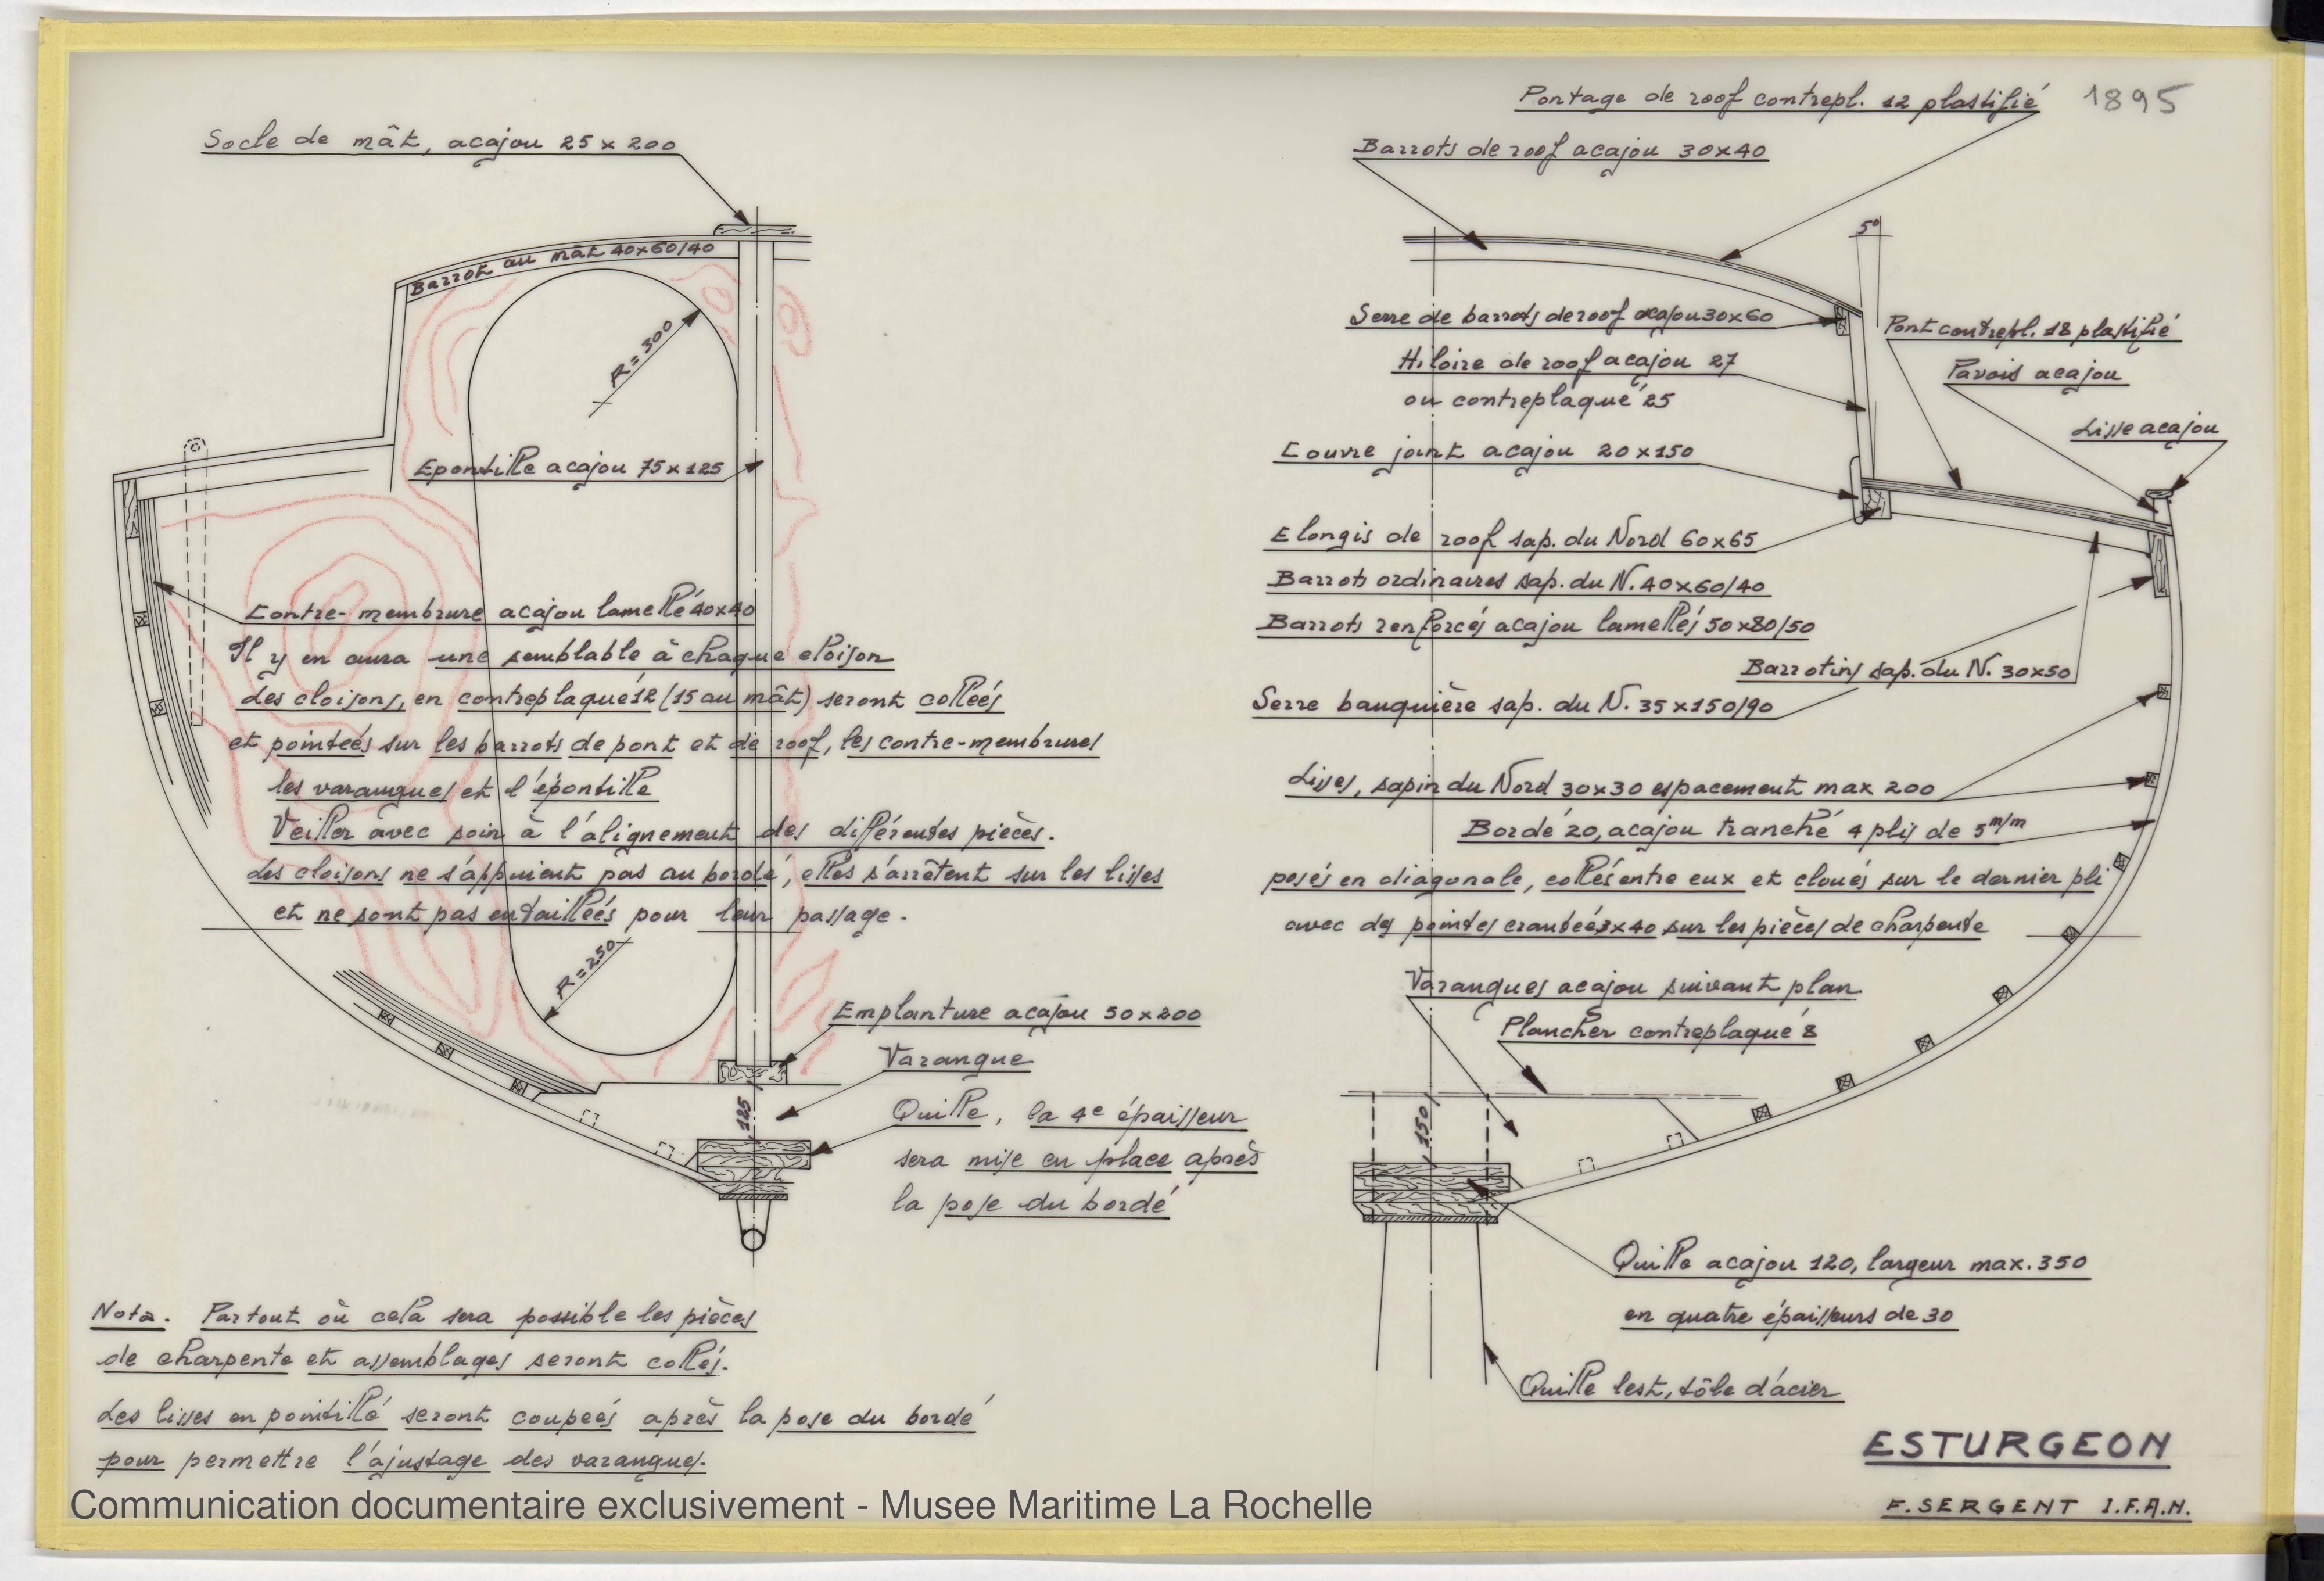 Socle de mât, acajou 25 x 200
Barrot au mât 40x60/40
R=300
Epontille acajou 75 x 125
Contre-membrure acajou lamellé 40x40
Il y en aura une semblable à chaque cloison
Les cloisons, en contreplaqué 12 (15 au mât) seront collées
et pointées sur les barrots de pont et de roof, les contre-membrures
les varangues et l'épontille
Veiller avec soin à l'alignement des différentes pièces.
Les cloisons ne s'appuient pas au bordé, elles s'arrêtent sur les lisses
et ne sont pas entaillées pour leur passage.
R=250
Emplanture acajou 50 x 200
Varangue
125
Quille, la 4e épaisseur
sera mise en place après
la pose du bordé
Nota. Partout où celà sera possible les pièces
de charpente et assemblages seront collés.
Les lisses en pointillé seront coupées après la pose du bordé
pour permettre l'ajustage des varangues.
Pontage de roof contrepl. 12 plastifié
1895
Barrots de roof acajou 30x40
5°
Serre de barrots de roof acajou 30x60
Pont contrepl. 18 plastifié
Hiloire de roof acajou 27
ou contreplaqué 25
Pavois acajou
Lisse acajou
Couvre joint acajou 20x150
Elongis de roof sap. du Nord 60x65
Barrots ordinaires sap. du N. 40x60/40
Barrots renforcés acajou lamellés 50x80/50
Barrotins sap. du N. 30x50
Serre bauquière sap. du N. 35x150/90
Lisses, sapin du Nord 30x30 espacement max 200
Bordé 20, acajou tranché 4 plis de 5 m/m
posés en diagonale, collés entre eux et cloués sur le dernier pli
avec des pointes crantées 3x40 sur les pièces de charpente
Varangues acajou suivant plan
Plancher contreplaqué 8
150
Quille acajou 120, largeur max. 350
en quatre épaisseurs de 30
Quille lest, tôle d'acier
ESTURGEON
F. SERGENT I.F.A.N.
Communication documentaire exclusivement - Musee Maritime La Rochelle